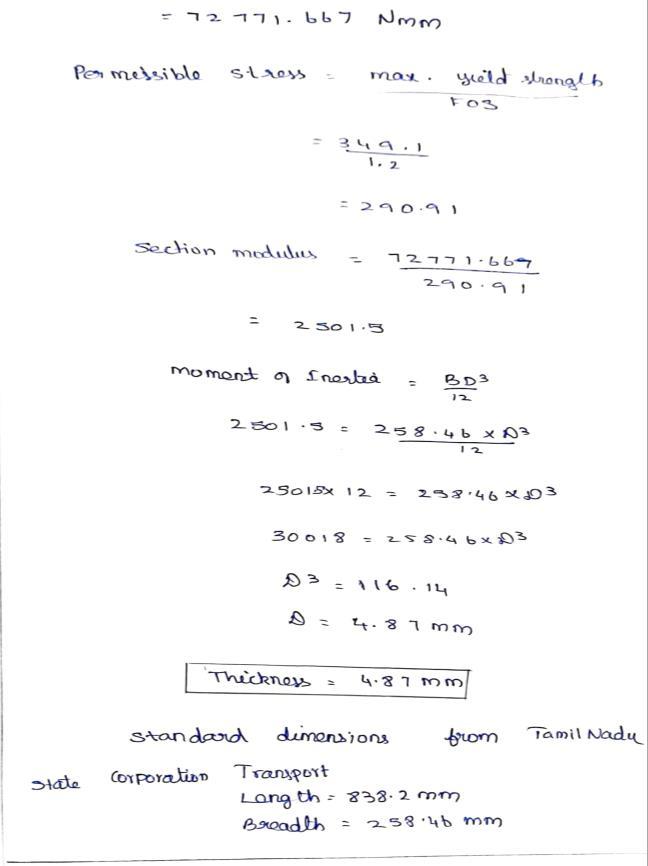 = 72 771.667 Nmm
Permessible stress = max. yield strength / FOS
= 349.1 / 1.2
= 290.91
Section modulus = 72771.667 / 290.91
= 2501.5
Moment of Inertia = BD³ / 12
2501.5 = 258.46 x D³ / 12
25015x 12 = 258.46 x D³
30018 = 258.46 x D³
D³ = 116.14
D = 4.87 mm
Thickness = 4.87 mm
Standard dimensions from Tamil Nadu
State Corporation Transport
Length = 838.2 mm
Breadth = 258.46 mm